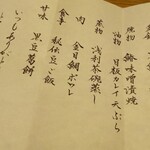 焼物 鰆味噌漬焼
油物 目板カレイ天ぷら
蒸物 浅利茶碗蒸し
肉 金目鯛ポワレ
食事 秘伝豆ご飯
甘味 黒豆葛餅